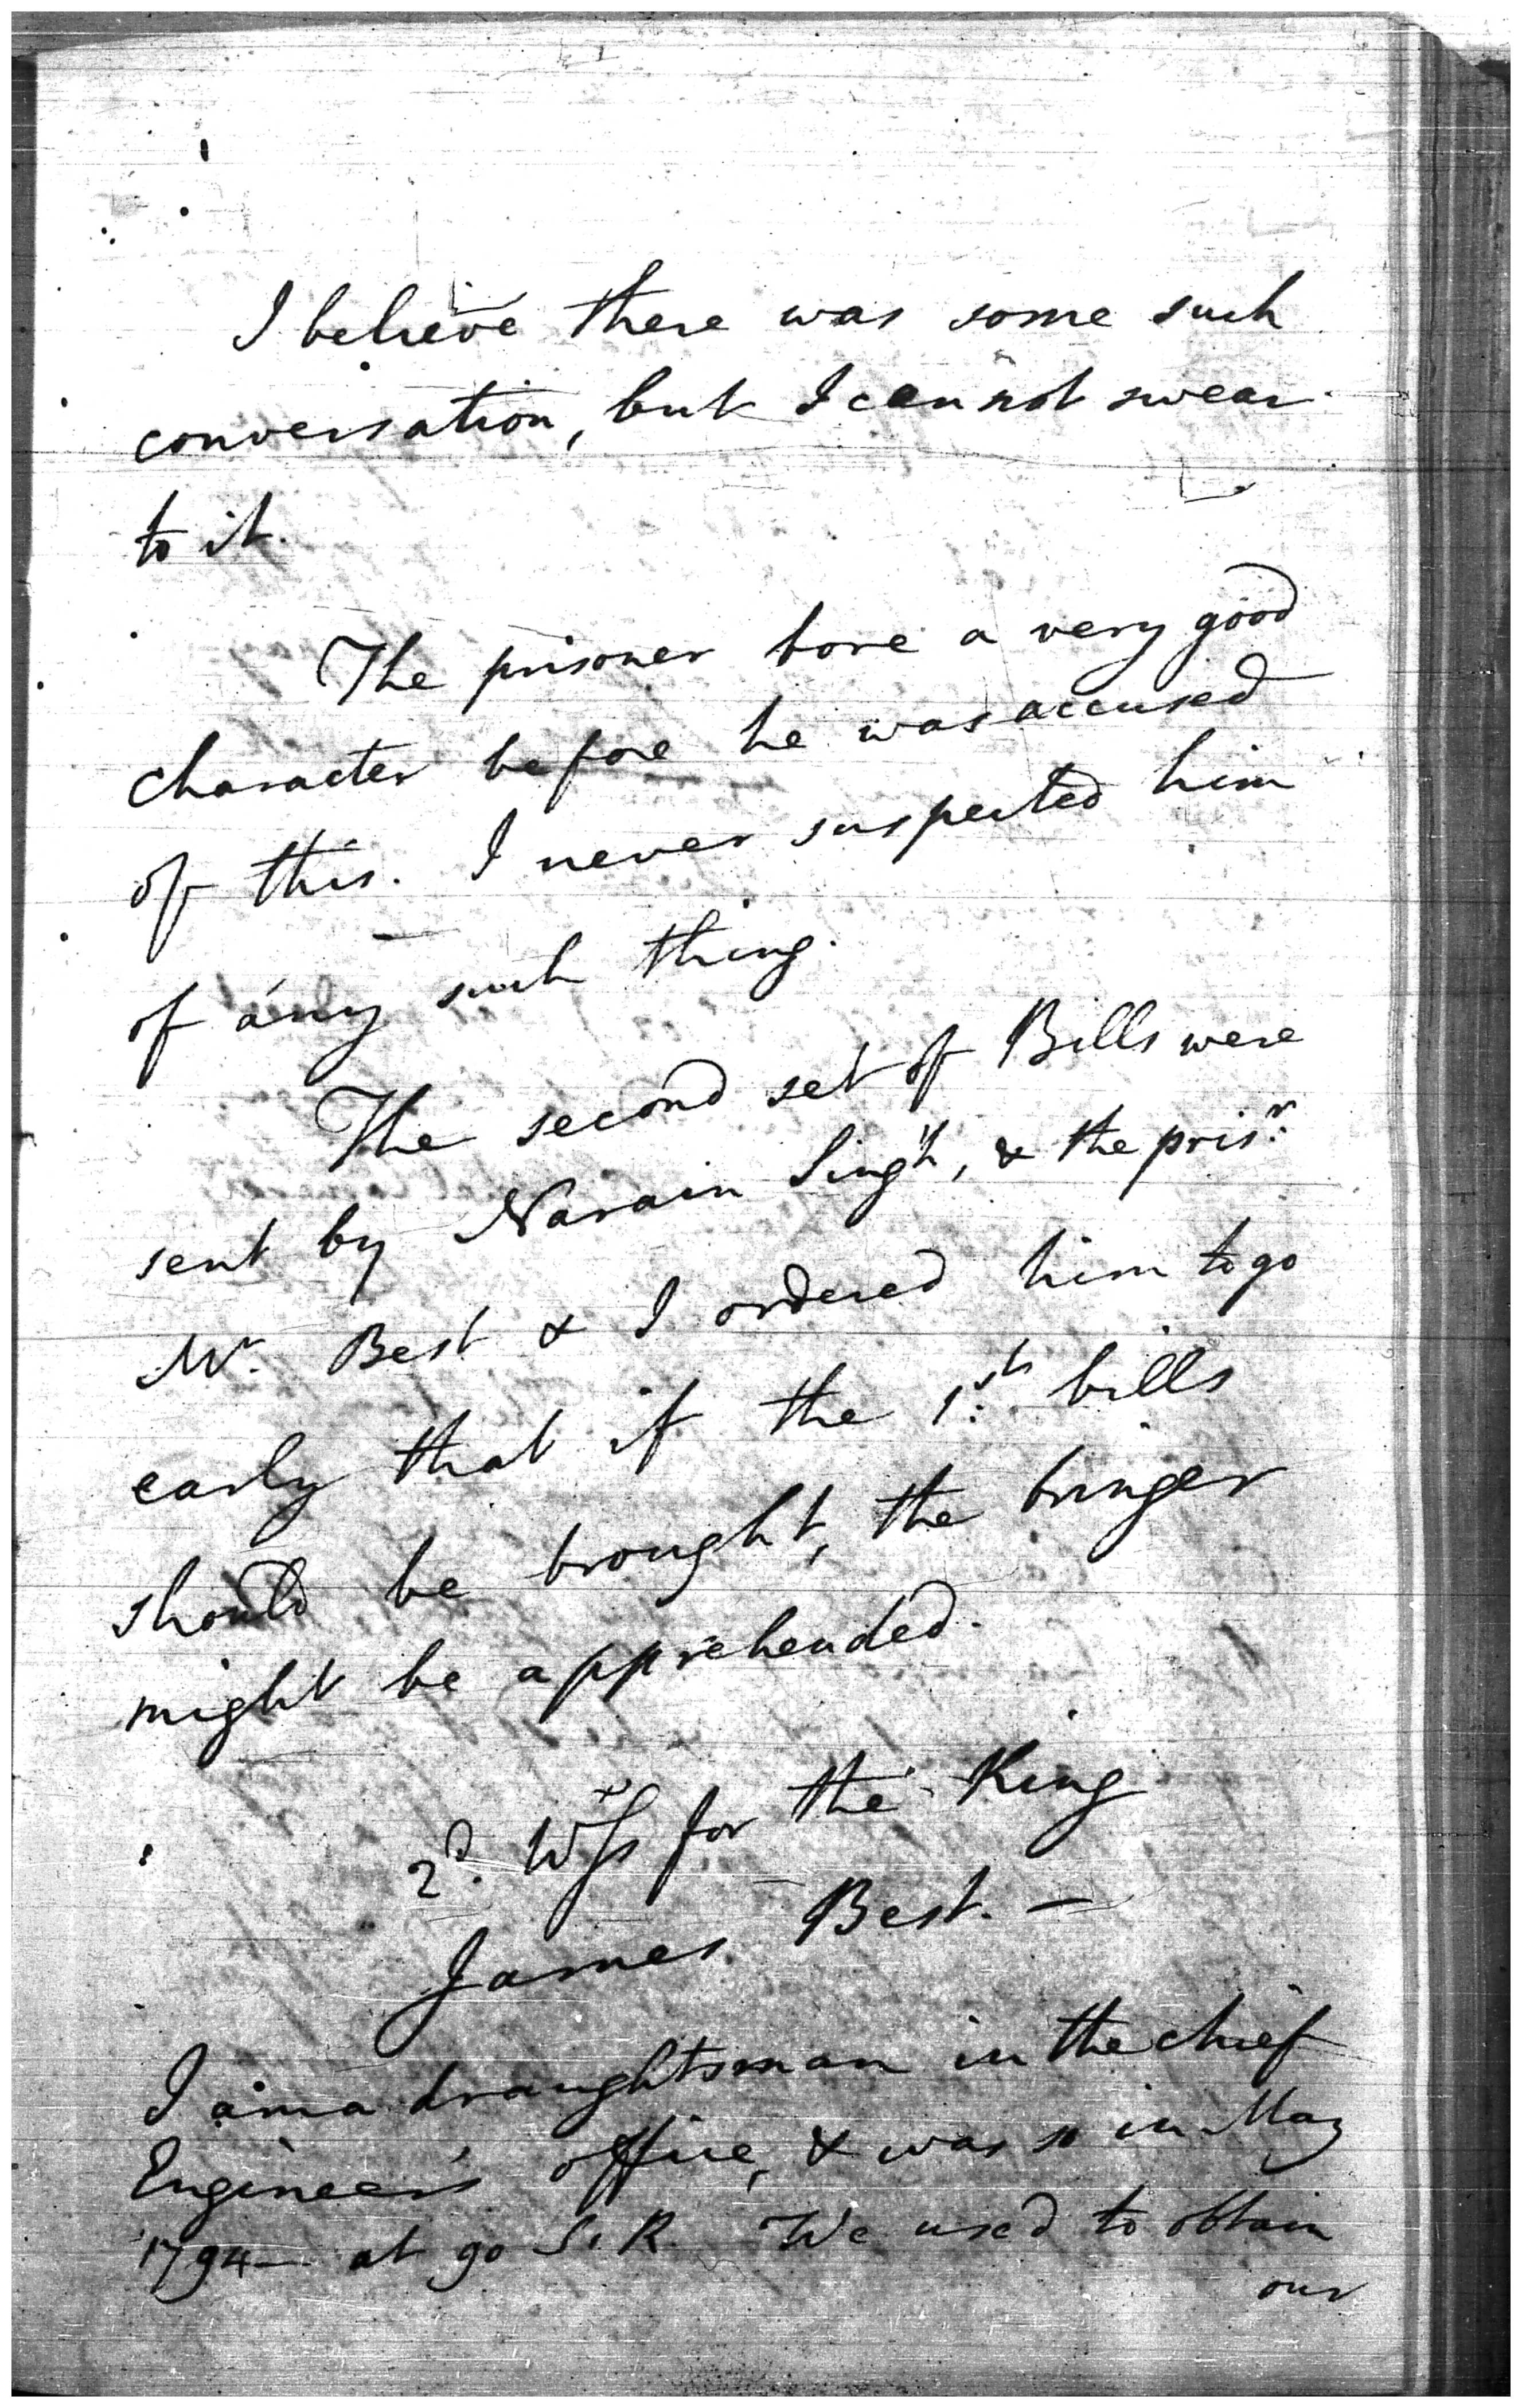 I believe there was some such
conversation, but I cannot swear
to it.
The prisoner bore a very good
character before he was accused
of this. I never suspected him
of any such thing.
The second set of Bills were
sent by Narain Singh, & the prisr.
Mr. Best & I ordered him to go
early that if the 1st. bills
should be brought, the bringer
might be apprehended.
2d. Wss for the King
James Best. —
I am a draughtsman in the chief
Engineer's office, & was so in May
1794 — at 90 S. R. We used to obtain
our